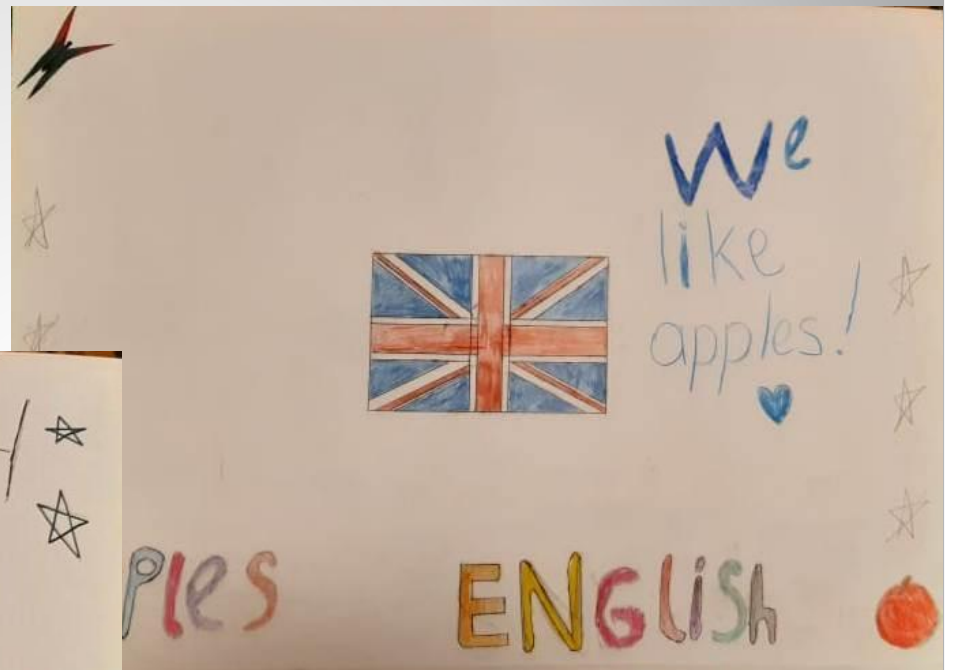 We
like
apples!
ples ENGlish